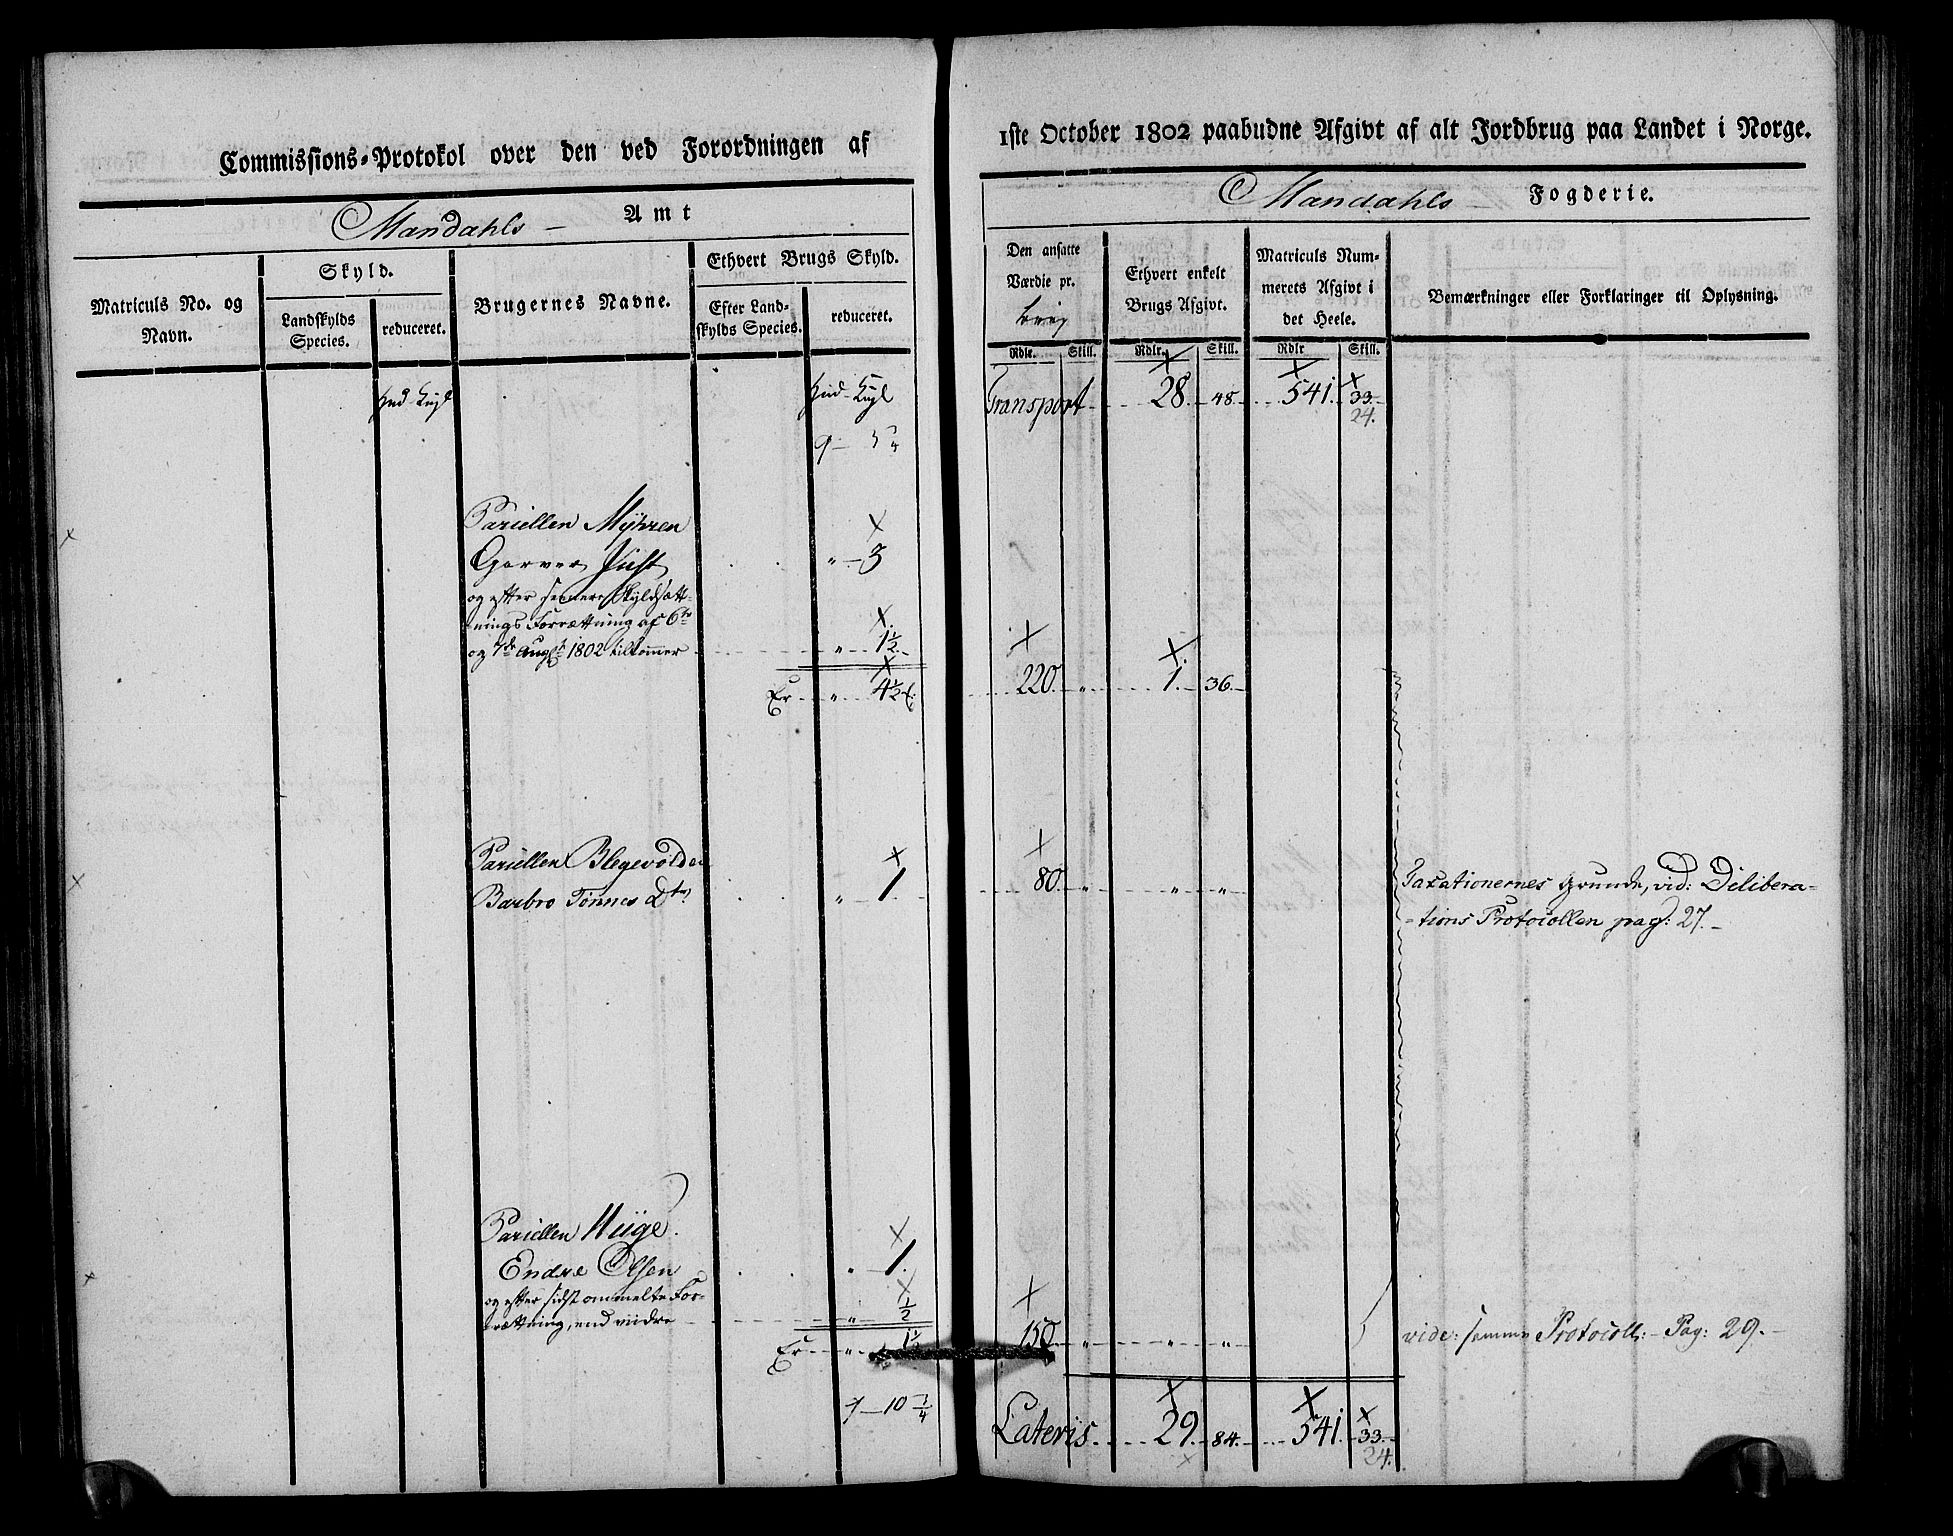 Commissions-Protokol over den ved Forordningen af
Mandahls Amt
Matriculs No. og
Navn.
Skyld.
Landskylds
Species.
reduceret.
Brugernes Navne.
Ethvert Brugs Skyld.
Efter Land-
skylds Species.
reduceret.
Hud Kugl
Hud Kugl
9
Parcellen Myhren
Garver Just
" 3
og efter senere Skyldsætt-
nings Forrætning af 6te
og 7de Augst 1802 tilkommer
" 1½
Er " 4½
Parcellen Blegevolden
Barbro Tønnes Dtr
" 1
Parcellen Hüge
Endre Olsen
" 1.
og efter sidst ommelte For-
rættning, end vidre
" ½
Er " 1½
10
1ste October 1802 paabudne Afgivt af alt Jordbrug paa Landet i Norge.
Mandahls Fogderie.
Den ansatte
Værdie pr.
Brug
Rdlr. Skill.
Ethvert enkelt
Brugs Afgivt.
Rdlr. Skill.
Matriculs Num-
merets Afgivt i
det Heele.
Rdlr Skill.
Bemærkninger eller Forklaringer til Oplysning.
Transport 28. 48. 541. 33.
24.
220 " 1. 36.
80 " " " Taxationernes Grunde, vid: Delibera-
tions Protocollen pag: 27.
150 " " " vide: samme Protocoll: Pag: 29.
Lateris 29. 84. 541. 33.
24.